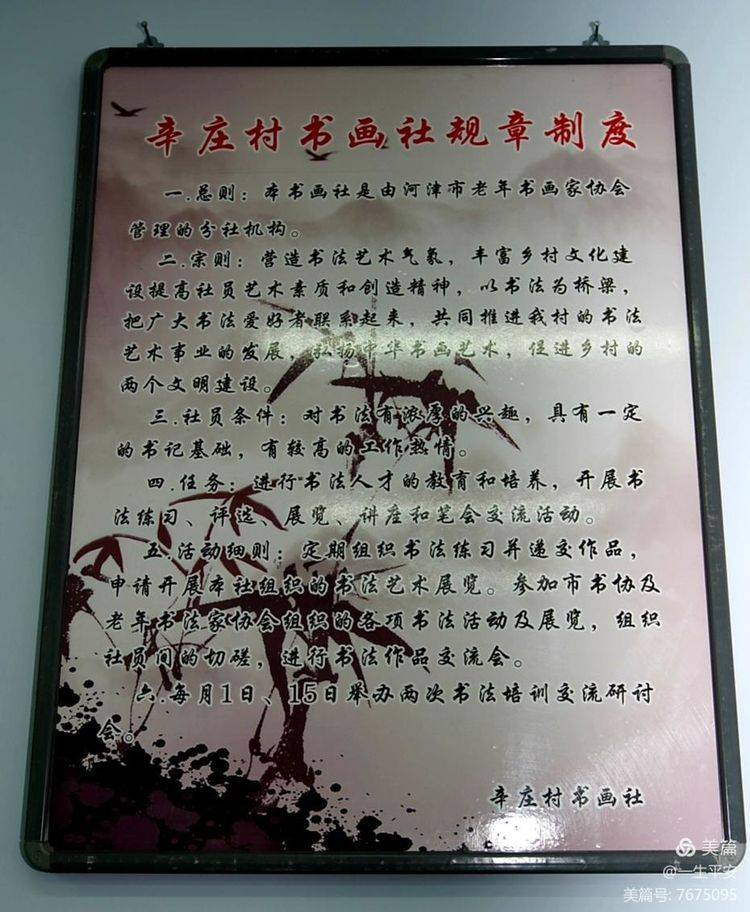 辛庄村书画社规章制度
一.总则：本书画社是由河津市老年书画家协会
管理的分社机构。
二.宗则：营造书法艺术气象，丰富乡村文化建
设提高社员艺术素质和创造精神，以书法为桥梁，
把广大书法爱好者联系起来，共同推进我村的书法
艺术事业的发展，弘扬中华书画艺术，促进乡村的
两个文明建设。
三.社员条件：对书法有浓厚的兴趣，具有一定
的书记基础，有较高的工作热情。
四.任务：进行书法人才的教育和培养，开展书
法练习、评选、展览、讲座和笔会交流活动。
五.活动细则：定期组织书法练习并递交作品，
申请开展本社组织的书法艺术展览。参加市书协及
老年书法家协会组织的各项书法活动及展览，组织
社员间的切磋，进行书法作品交流会。
六.每月1日、15日举办两次书法培训交流研讨
会。
辛庄村书画社
美篇
@一生平安
美篇号: 7675095